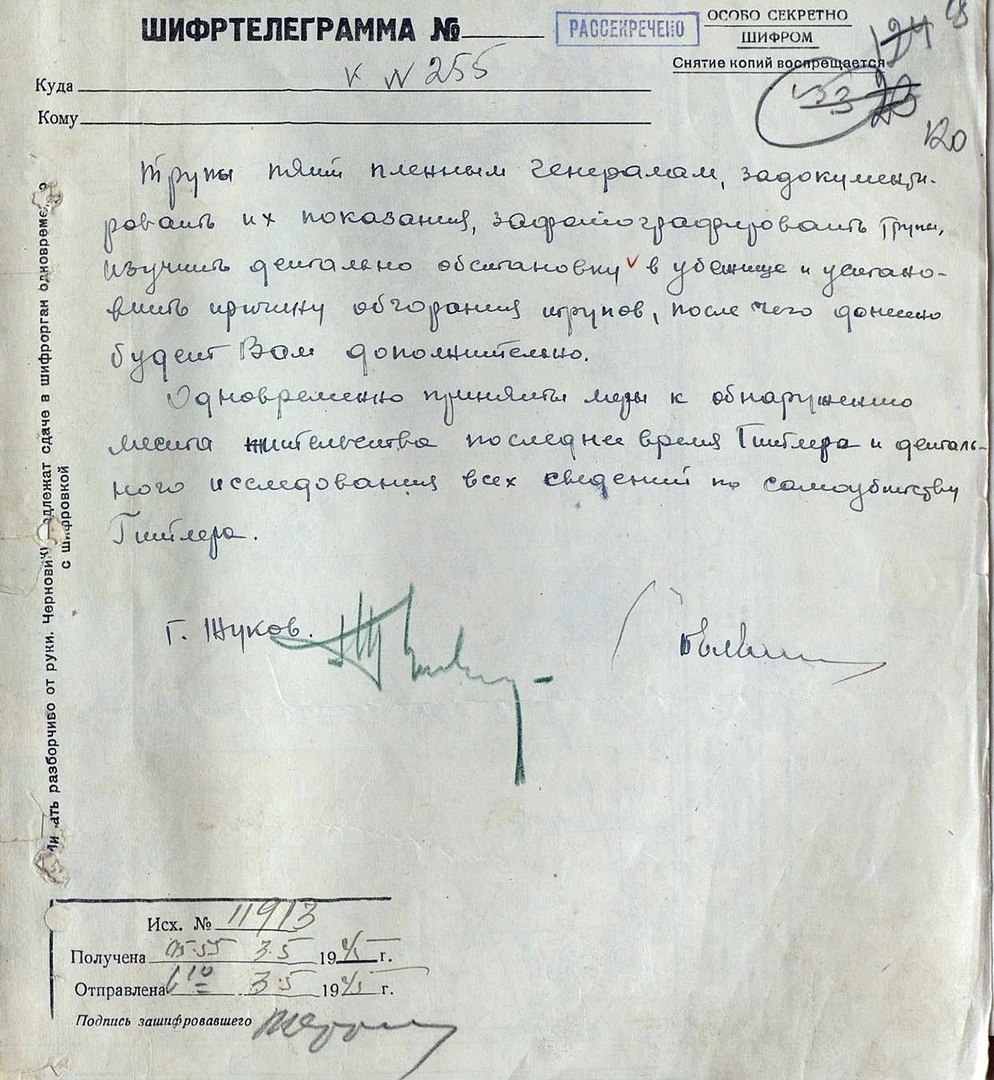 ШИФРТЕЛЕГРАММА №
РАССЕКРЕЧЕНО
ОСОБО СЕКРЕТНО
ШИФРОМ
Снятие копий воспрещается
124
33
120
Куда к N 255
Кому
Трупы пяти пленным генералам, задокументи-
ровать их показания, зафотографировать трупы,
изучить детально обстановку в убежище и устано-
вить причину обгорания трупов, после чего донесено
будет Вам дополнительно.
Одновременно приняты меры к обнаружению
места жительства последнее время Гитлера и деталь-
ного исследования всех сведений по самоубийству
Гитлера.
Г. Жуков.
разборчиво от руки. Черновики подлежат сдаче в шифрорган одновременно
с шифровкой
Исх. № 11913
Получена 05-55 3.5 1945 г.
Отправлена 6 10 3.5 1945 г.
Подпись зашифровавшего